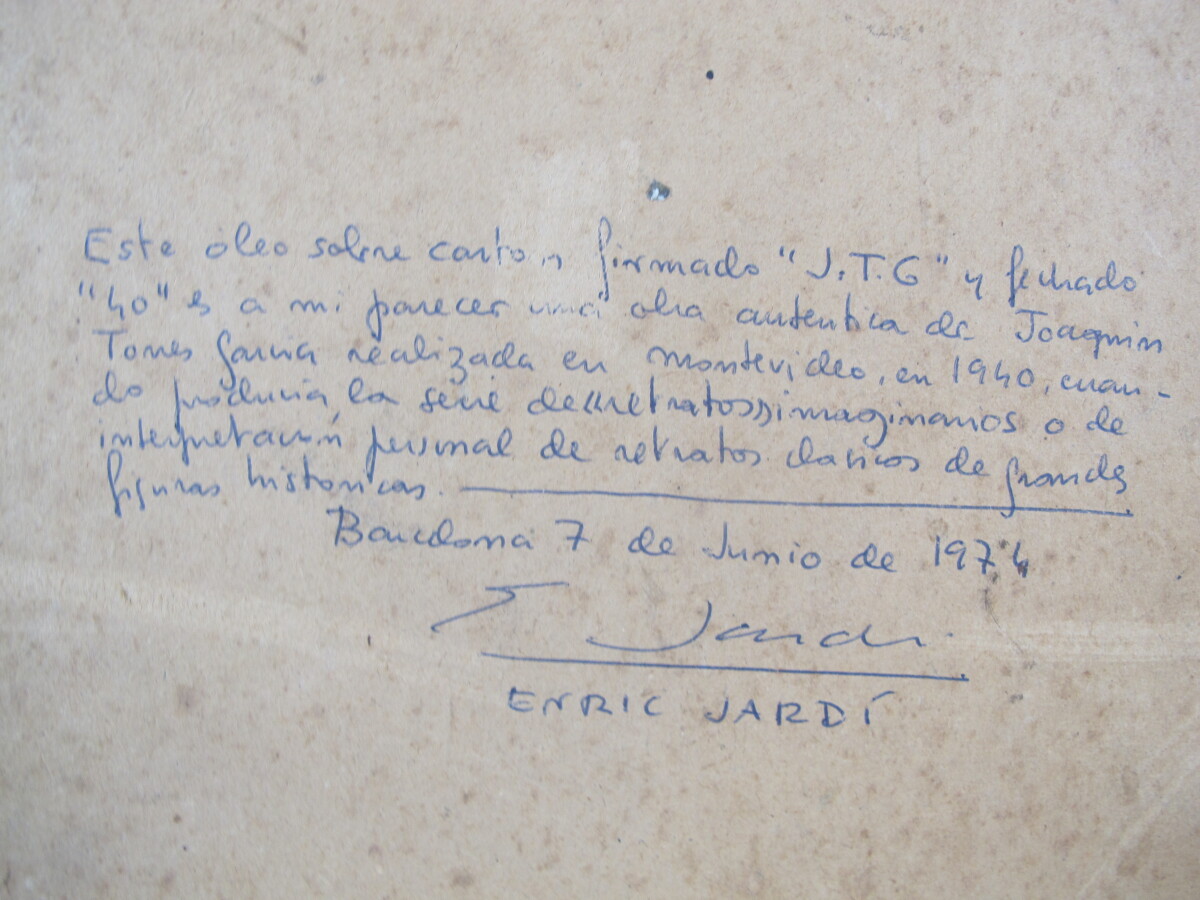 Este óleo sobre carton firmado "J.T.G" y fechado
"40" es a mi parecer una obra autentica de Joaquin
Torres Garcia realizada en Montevideo, en 1940, cuan-
do producia la serie de "retratos" imaginarios o de
interpretación personal de retratos clasicos de grandes
figuras historicas.
Barcelona 7 de Junio de 1974
E Jardi
ENRIC JARDÍ